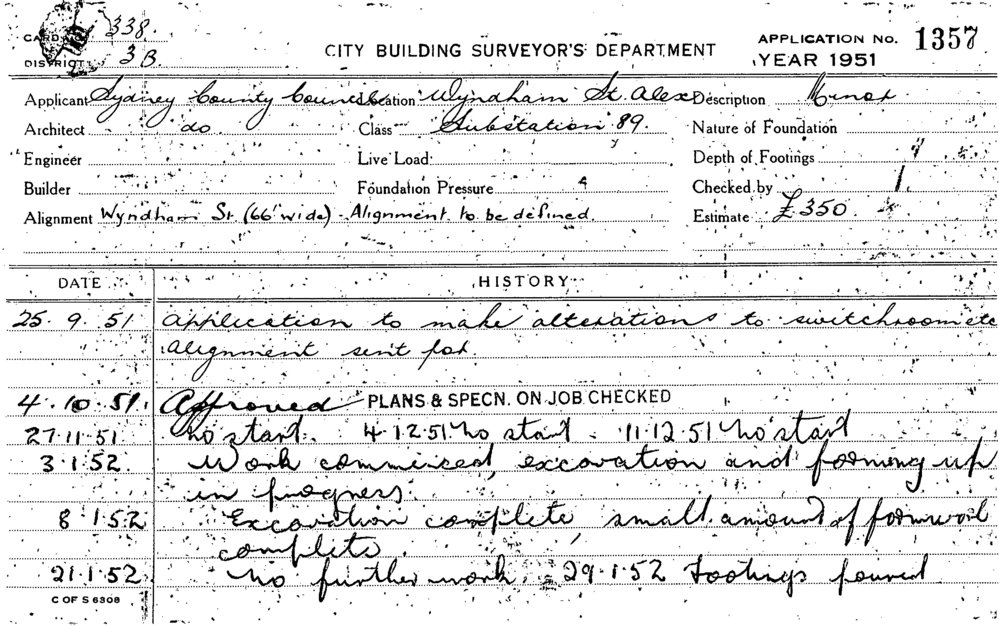 CARD 338.
DISTRICT 3B.
CITY BUILDING SURVEYOR'S DEPARTMENT
APPLICATION No. 1357
YEAR 1951
Applicant Sydney County Council Location Wyndham St. Alex Description Minor
Architect do Class Substation 89. Nature of Foundation
Engineer Live Load Depth of Footings
Builder Foundation Pressure Checked by
Alignment Wyndham St (66' wide) - Alignment to be defined. Estimate £350.
DATE HISTORY
25. 9. 51 Application to make alterations to switchroom etc
Alignment sent for.
4. 10. 51. Approved PLANS & SPECN. ON JOB CHECKED
27.11.51 No start. 4.12.51 No start. 11.12.51 No start
3.1.52. Work commenced, excavation and forming up
in progress.
8 1.52 Excavation complete small amount of formwork
complete.
21.1.52. No further work. 29.1.52 Footings poured
C OF S 6308